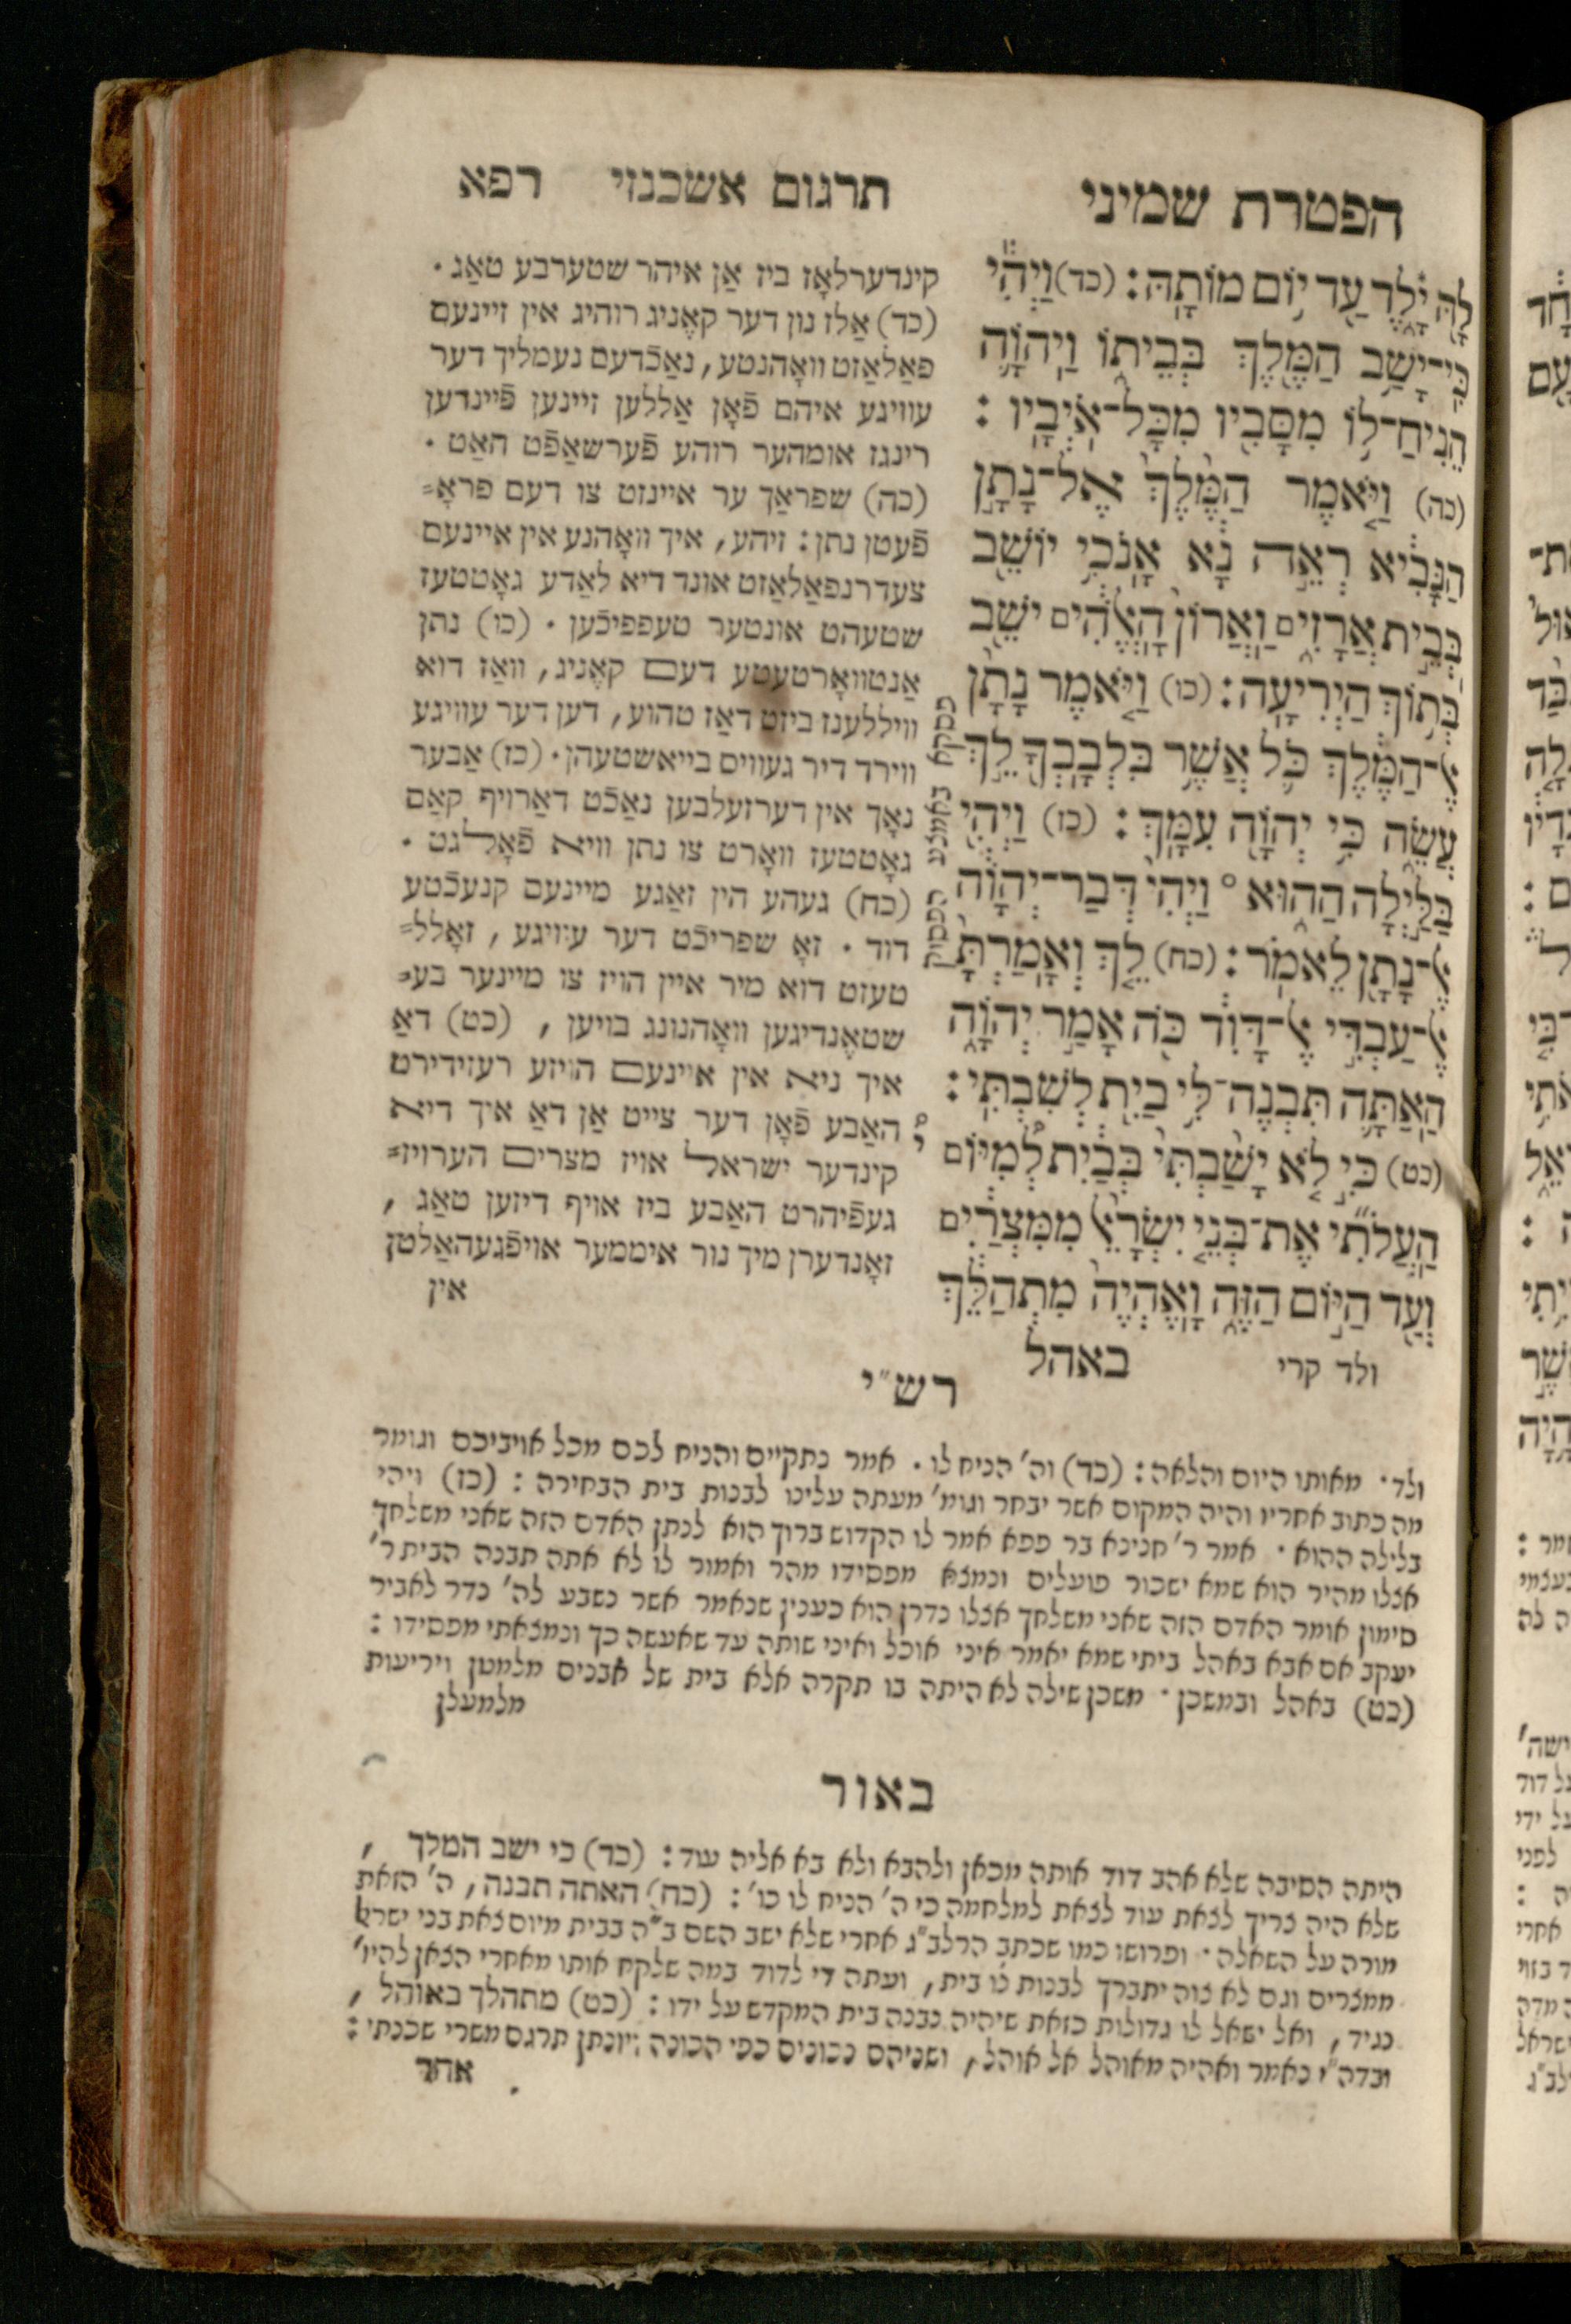 הפטרת שמיני
לָ֤הּ יָ֙לֶד֙ עַ֖ד י֥וֹם מוֹתָֽהּ׃ (כד) וַיְהִ֕י
כִּי־יָשַׁ֥ב הַמֶּ֖לֶךְ בְּבֵית֑וֹ וַֽיהוָ֛ה
הֵנִֽיחַ־ל֥וֹ מִסָּבִ֖יו מִכָּל־אֹֽיְבָֽיו׃
(כה) וַיֹּ֣אמֶר הַמֶּ֗לֶךְ אֶל־נָתָן֙
הַנָּבִ֔יא רְאֵ֣ה נָ֔א אָֽנֹכִ֥י יוֹשֵׁ֖ב
בְּבֵ֣ית אֲרָזִ֑ים וַֽאֲרוֹן֙ הָֽאֱלֹהִ֔ים יֹשֵׁ֖ב
בְּת֥וֹךְ הַיְרִיעָֽה׃ (כו) וַיֹּ֤אמֶר נָתָן֙
אֶל־הַמֶּ֔לֶךְ כֹּ֛ל אֲשֶׁ֥ר בִּלְבָבְךָ֖ לֵ֣ךְ
עֲשֵׂ֑ה כִּ֥י יְהוָ֖ה עִמָּֽךְ׃ (כז) וַיְהִ֖י
בַּלַּ֣יְלָה הַה֑וּא ° וַֽיְהִי֙ דְּבַר־יְהוָ֔ה
אֶל־נָתָ֖ן לֵאמֹֽר׃ (כח) לֵ֤ךְ וְאָֽמַרְתָּ֙
אֶל־עַבְדִּ֣י אֶל־דָּוִ֔ד כֹּ֖ה אָמַ֣ר יְהוָ֑ה
הַאַתָּ֥ה תִּבְנֶה־לִּ֥י בַ֖יִת לְשִׁבְתִּֽי׃
(כט) כִּ֣י לֹ֤א יָשַׁ֙בְתִּי֙ בְּבַ֔יִת לְ֠מִיּוֹם
הַעֲלֹתִ֞י אֶת־בְּנֵ֤י יִשְׂרָאֵל֙ מִמִּצְרַ֔יִם
וְעַ֖ד הַיּ֣וֹם הַזֶּ֑ה וָֽאֶהְיֶה֙ מִתְהַלֵּ֔ךְ
ולד קרי
באהל
פסקא באמצע הפסוק
תרגום אשכנזי רפא
קינדערלאָז ביז אַן איהר שטערבע טאַג ·
(כד) אַלז נון דער קאָניג רוהיג אין זיינעם
פאַלאַזט וואָהנטע, נאַכֿדעם נעמליך דער
עוויגע איהם פֿאָן אַללען זיינען פֿיינדען
רינגז אומהער רוהע פֿערשאַפֿט האַט ·
(כה) שפראַך ער איינזט צו דעם פראָ=
פֿעטן נתן : זיהע, איך וואָהנע אין איינעם
צעדרנפאַלאַזט אונד דיא לאַדע גאָטטעז
שטעהט אונטער טעפפיכֿען · (כו) נתן
אַנטוואָרטעטע דעם קאָניג, וואַז דוא
וויללענז ביזט דאַז טהוע, דען דער עוויגע
ווירד דיר געוויס בייאשטעהן · (כז) אַבער
נאָך אין דערזעלבען נאַכֿט דאַרויף קאַם
גאָטטעז וואָרט צו נתן וויא פֿאָלגט ·
(כח) געהע הין זאַגע מיינעם קנעכֿטע
דוד · זאָ שפריכֿט דער עוויגע, זאָלל=
טעזט דוא מיר איין הויז צו מיינער בע=
שטאָנדיגען וואָהנונג בויען, (כט) דאַ
איך ניא אין איינעם הויזע רעזידירט
האַבע פֿאָן דער צייט אַן דאַ איך דיא
קינדער ישראל אויז מצרים הערויז=
געפֿיהרט האַבע ביז אויף דיזען טאַג,
זאָנדערן מיך נור איממער אויפֿגעהאַלטן
אין
רש״י
ולד · מאותו היום והלאה : (כד) וה׳ הניח לו · אמר נתקיים והניח לכם מכל אויביכם וגומר
מה כתוב אחריו והיה המקום אשר יבחר וגומ׳ מעתה עלינו לבנות בית הבחירה : (כז) ויהי
בלילה ההוא · אמר ר׳ חנינא בר פפא אמר לו הקדוש ברוך הוא לנתן האדם הזה שאני משלחך
אצלו מהיר הוא שמא ישכור פועלים ונמצא מפסידו מהר ואמור לו לא אתה תבנה הבית ר׳
סימון אומר האדם הזה שאני משלחך אצלו נדרן הוא כענין שנאמר אשר נשבע לה׳ נדר לאביר
יעקב אם אבא באהל ביתי שמא יאמר איני אוכל ואיני שותה עד שאעשה כך ונמצאתי מפסידו :
(כט) באהל ובמשכן · משכן שילה לא היתה בו תקרה אלא בית של אבנים מלמטן ויריעות
מלמעלן
באור
היתה הסיבה שלא אהב דוד אותה מכאן ולהבא ולא בא אליה עוד : (כד) כי ישב המלך,
שלא היה צריך לצאת עוד לצאת למלחמה כי ה׳ הניח לו כו׳ : (כח) האתה תבנה, ה׳ הזאת
מורה על השאלה · ופרושו כמו שכתב הרלב״ג אחרי שלא ישב השם ב״ה בבית מיום צאת בני ישראל
ממצרים וגם לא צוה יתברך לבנות לו בית, ועתה די לדוד במה שלקח אותו מאחרי הצאן להיו׳
נגיד, ואל ישאל לו גדולות כזאת שיהיה נבנה בית המקדש על ידו : (כט) מתהלך באוהל,
ובדה״י נאמר ואהיה מאוהל אל אוהל, ושניהם נכונים כפי הכונה ; יונתן תרגם משרי שכנתי :
אחר